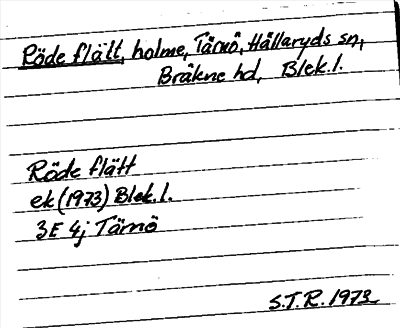 Röde flätt, holme, Tärnö, Hällaryds sn,
Bräkne hd, Blek. l.
Röde flätt
ek (1973) Blek. l.
3E 4j Tärnö
S.T.R. 1973